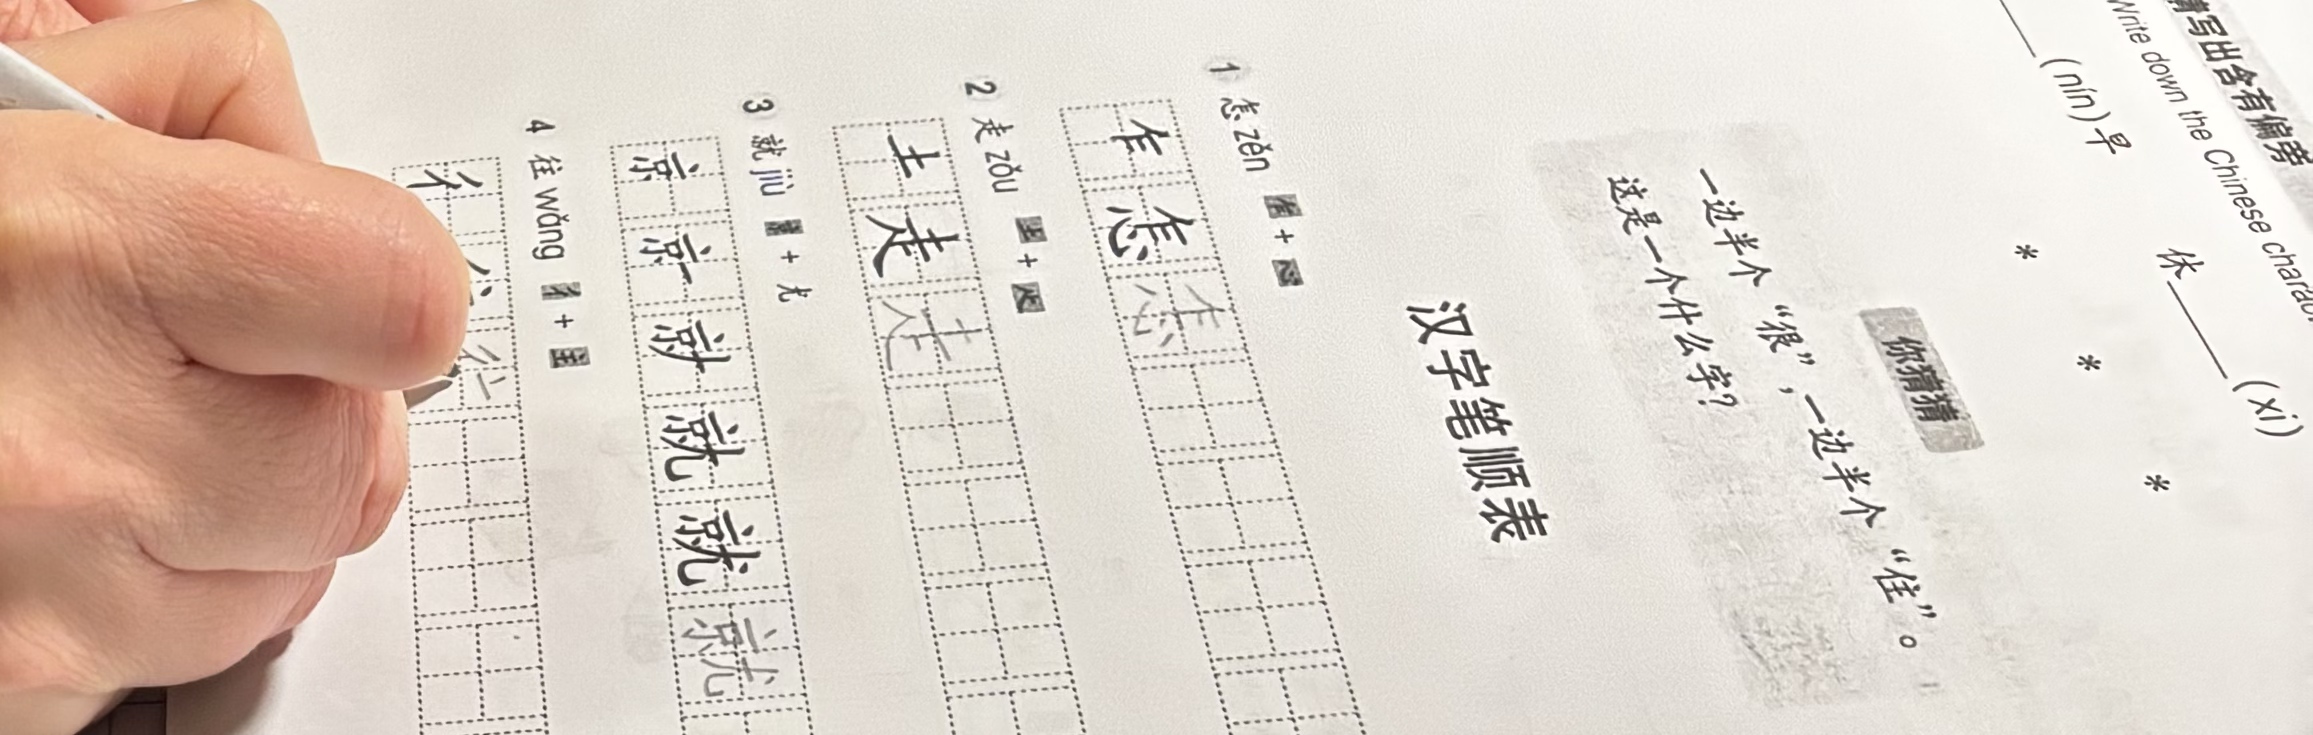 请写出含有偏旁
Write down the Chinese charac
(nín) 早 休 (xi)
* * *
你猜猜
一边半个“很”，一边半个“住”。
这是一个什么字？
汉字笔顺表
1 怎 zěn 乍 + 心
乍 怎 怎
2 走 zǒu 土 + 龰
土 走 走
3 就 jiù 京 + 尤
京 就 就 就
4 往 wǎng 彳 + 主
彳